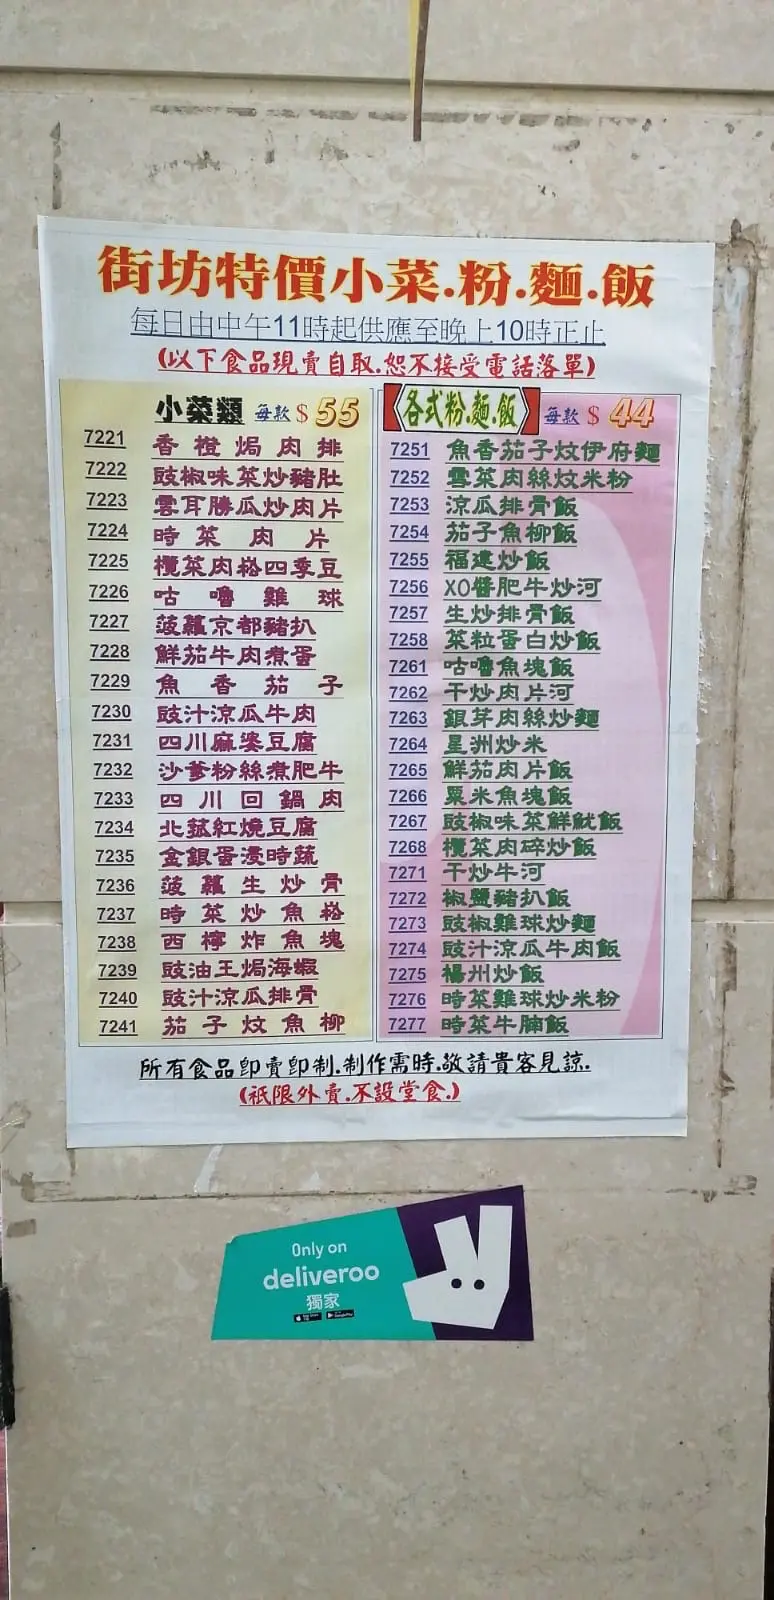 街坊特價小菜.粉.麵.飯
每日由中午11時起供應至晚上10時正止
(以下食品現賣自取.恕不接受電話落單)
小菜類 每款 $ 55
7221 香橙焗肉排
7222 豉椒味菜炒豬肚
7223 雲耳勝瓜炒肉片
7224 時菜肉片
7225 欖菜肉崧四季豆
7226 咕嚕雞球
7227 菠蘿京都豬扒
7228 鮮茄牛肉煮蛋
7229 魚香茄子
7230 豉汁涼瓜牛肉
7231 四川麻婆豆腐
7232 沙爹粉絲煮肥牛
7233 四川回鍋肉
7234 北菰紅燒豆腐
7235 金銀蛋浸時蔬
7236 菠蘿生炒骨
7237 時菜炒魚崧
7238 西檸炸魚塊
7239 豉油王焗海蝦
7240 豉汁涼瓜排骨
7241 茄子炆魚柳
各式粉.麵.飯 每款 $ 44
7251 魚香茄子炆伊府麵
7252 雪菜肉絲炆米粉
7253 涼瓜排骨飯
7254 茄子魚柳飯
7255 福建炒飯
7256 XO醬肥牛炒河
7257 生炒排骨飯
7258 菜粒蛋白炒飯
7261 咕嚕魚塊飯
7262 干炒肉片河
7263 銀芽肉絲炒麵
7264 星洲炒米
7265 鮮茄肉片飯
7266 粟米魚塊飯
7267 豉椒味菜鮮魷飯
7268 欖菜肉碎炒飯
7271 干炒牛河
7272 椒鹽豬扒飯
7273 豉椒雞球炒麵
7274 豉汁涼瓜牛肉飯
7275 楊州炒飯
7276 時菜雞球炒米粉
7277 時菜牛腩飯
所有食品即賣即制.制作需時.敬請貴客見諒.
(祇限外賣.不設堂食.)
Only on
deliveroo
獨家